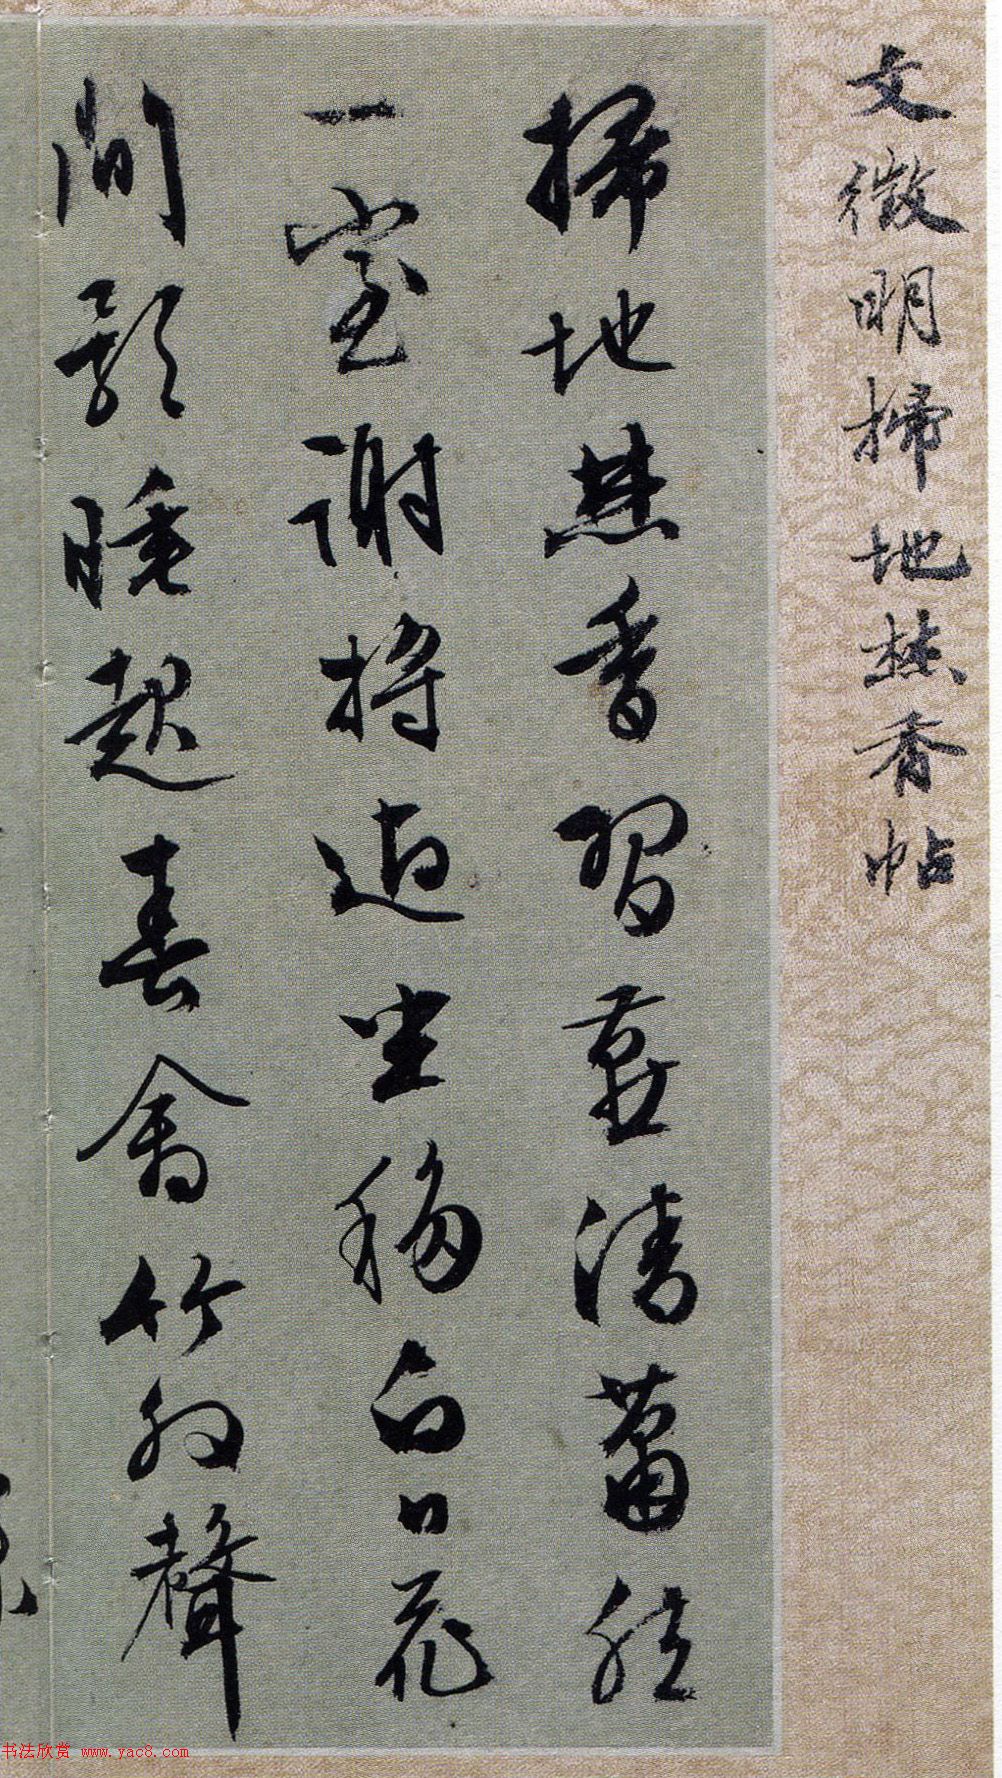 文徵明掃地焚香帖
掃地焚香習燕清蕭然
一室謝將迎坐移白日花
間影睡起春禽竹外聲
书法欣赏 www.yac8.com